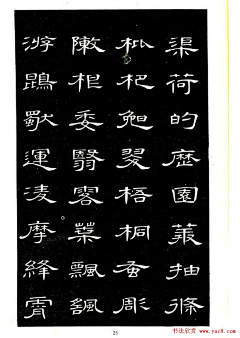 渠荷的歷園莽抽條
枇杷晚翠梧桐蚤彫
陳根委翳落葉飄颻
游鵾獨運凌摩絳霄
23
书法欣赏 www.yac8.com